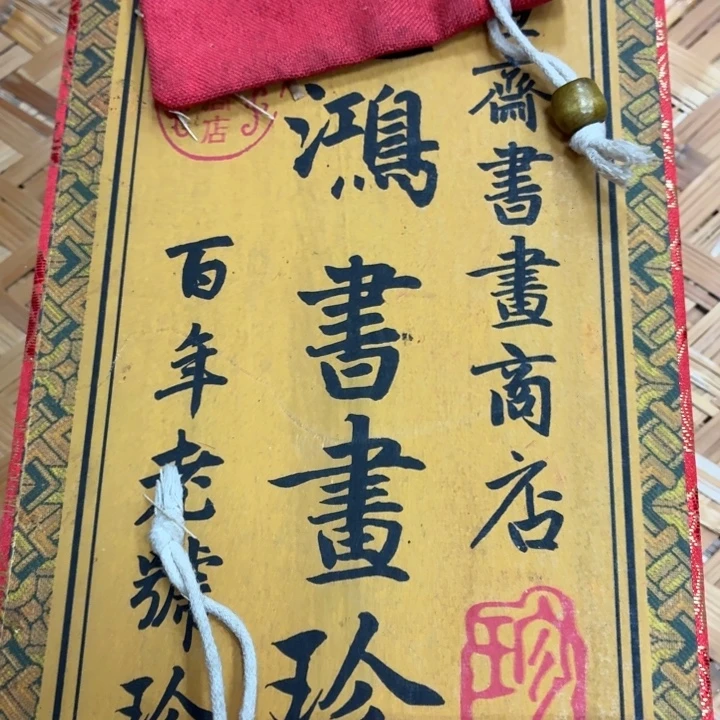 齋書畫商店
鴻書畫珍
百年老號珍
店
珍